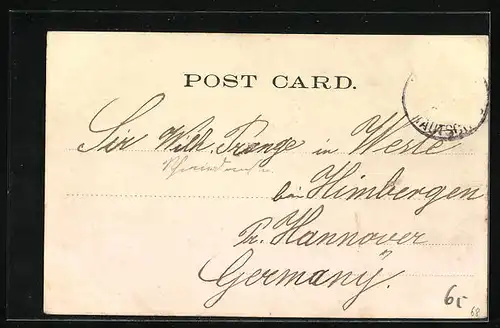 POST CARD.
KAUTSCH
Sir Wilh. Prange in Weste
bei Himbergen
Pr. Hannover
Germany.
65
68